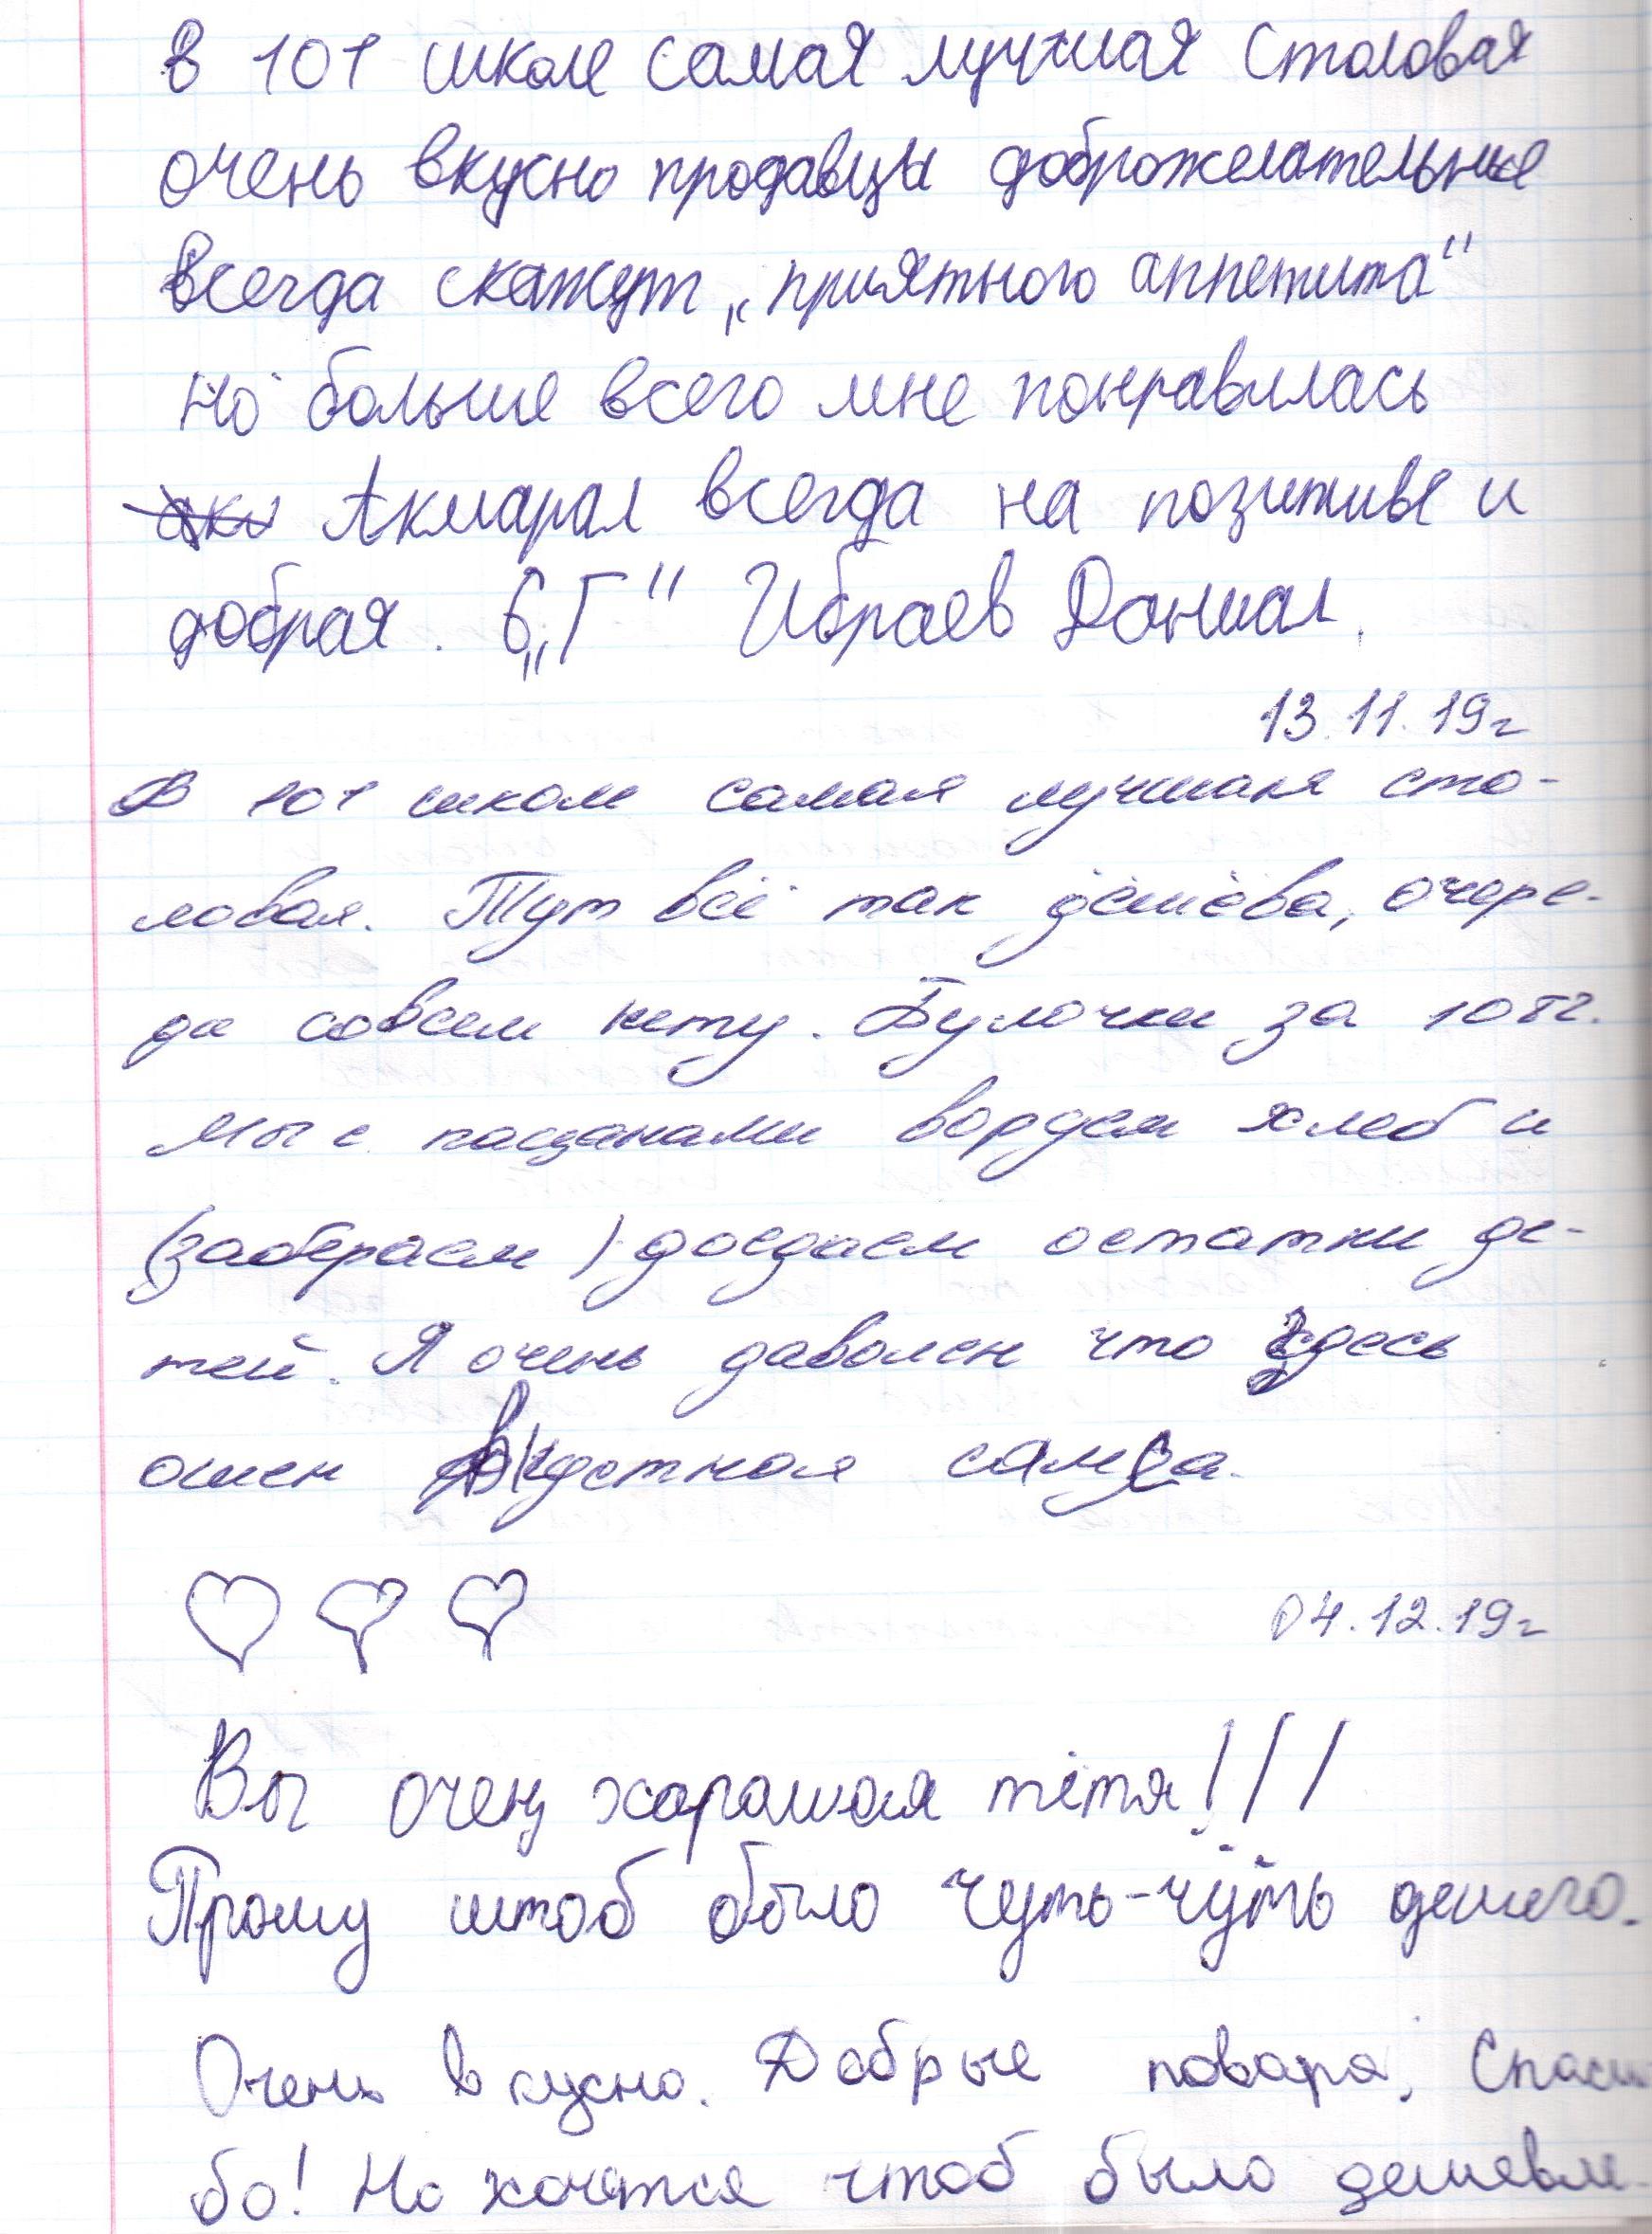 В 101 школе самая лучшая столовая
очень вкусно продавцы доброжелательные
всегда скажут „приятного аппетита"
но больше всего мне понравилась
Акмарал всегда на позитиве и
добрая. 6 „Г" Ибраев Даниал.
13.11.19г
В 101 школе самая лучшая сто-
ловая. Тут всё так дёшёва, очере-
ди совсем нету. Булочки за 10тг.
Мы с пацанами воруем хлеб и
(забераем) доедаем остатки де-
тей. Я очень даволен что здесь
ошен вкустная самса.
04.12.19г
Вы очень харашая тётя!!!
Прошу штоб было чуть-чуть дешего.
Очень вкусно. Добрые повара. Спаси
бо! Но хочется чтоб было дешевле